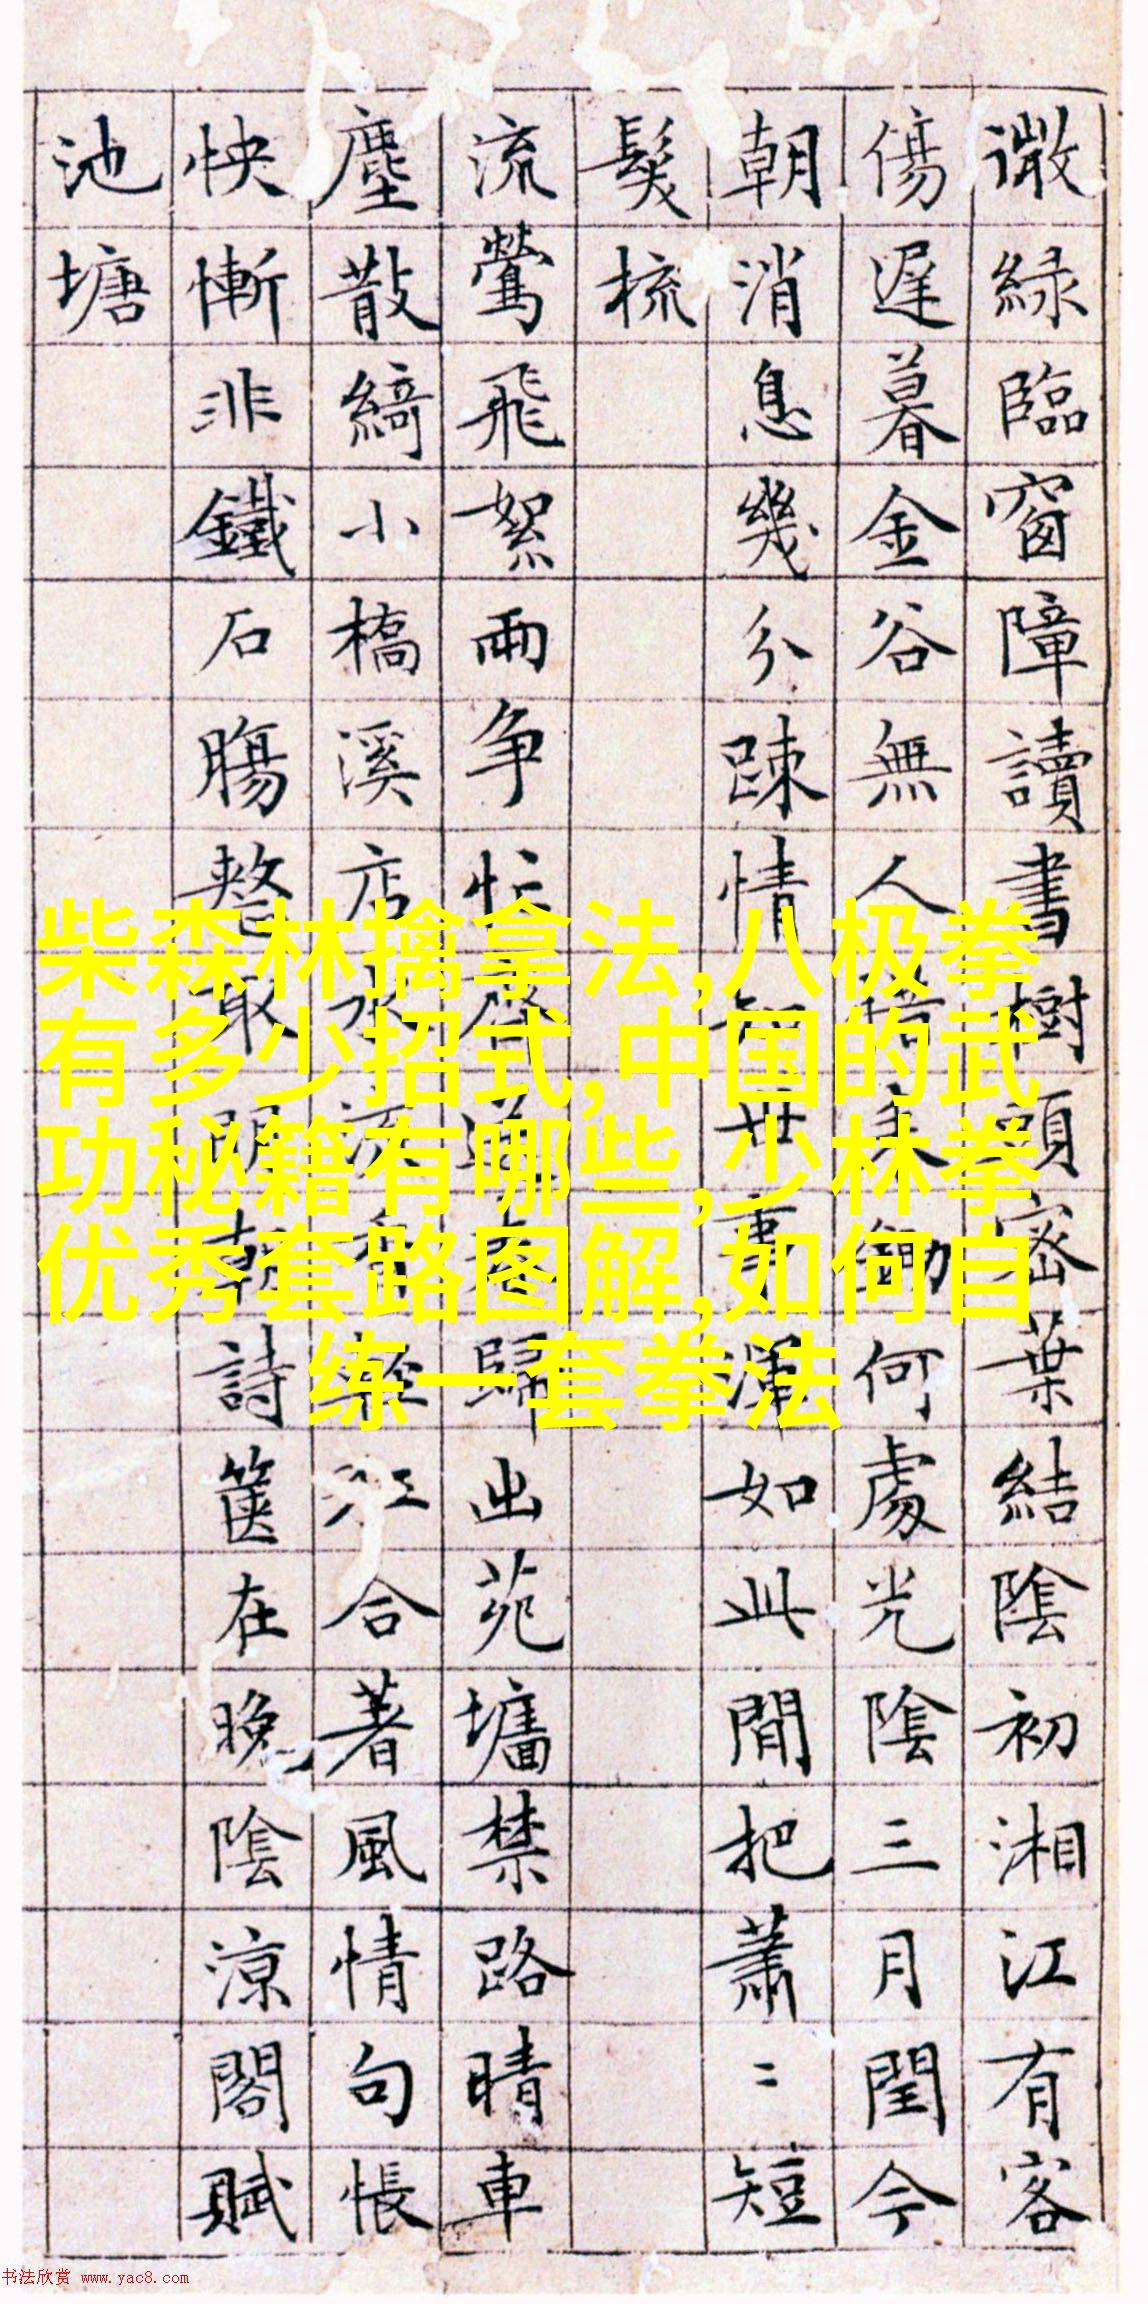 微緑臨窗障讀書樹頭密葉結陰初湘江有客
傷遲暮金谷無人何處光陰三月閏今
朝消息幾分踈情世事渾如此間把蕭〻短
髮梳
流鶯飛絮兩争忙春歸出苑墻禁路晴車
塵散綺小橋溪店水江合著風情句悵
怏慚非鐵石腸詩篋在晚陰涼閣賦
池塘
柴森林擒拿法,八极拳
有多少招式,中国的武
功秘籍有哪些,少林拳
优秀套路图解,如何自
练一套拳法
书法欣赏 www.yac8.com